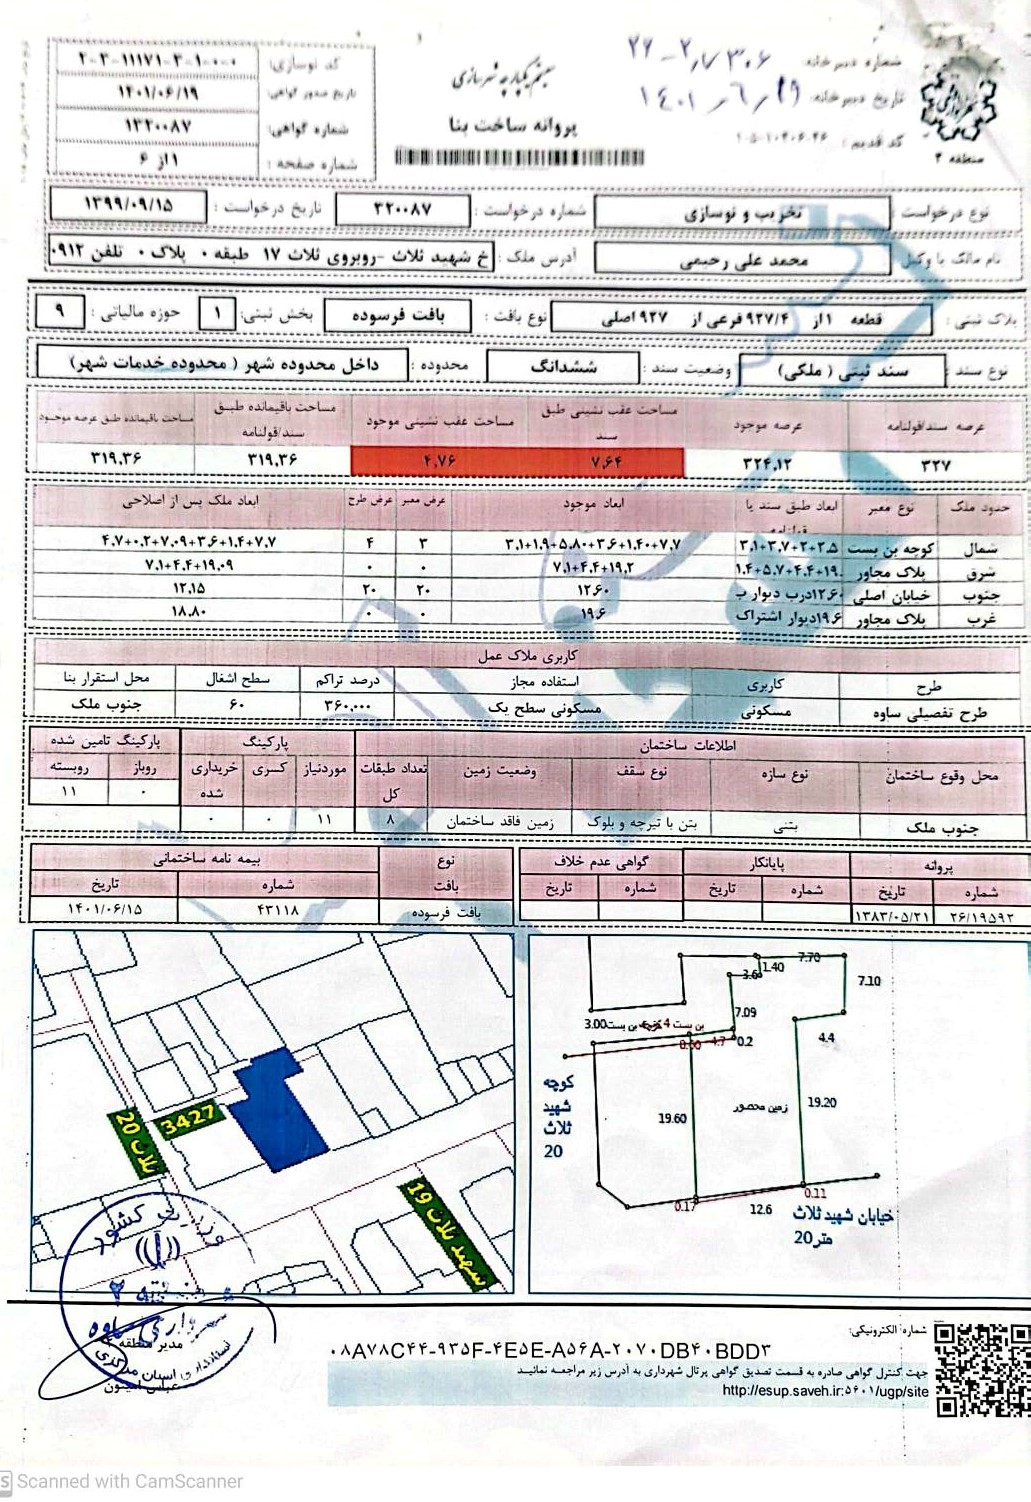 شماره دبیرخانه: ۲۶-۲/۷۳۰۶
تاریخ دبیرخانه: ۱۴۰۱/۶/۱۹
کد قدیم: ۱۰۵-۱۰۴۰۶۰۴۶
منطقه ۲
سیستم یکپارچه شهرسازی
پروانه ساخت بنا
کد نوسازی: ۲-۳-۱۱۱۷۱-۳-۱-۰-۰
تاریخ صدور گواهی: ۱۴۰۱/۰۶/۱۹
شماره گواهی: ۱۳۲۰۰۸۷
شماره صفحه: ۱ از ۶
نوع درخواست: تخریب و نوسازی شماره درخواست: ۳۲۰۰۸۷ تاریخ درخواست: ۱۳۹۹/۰۹/۱۵
نام مالک یا وکیل محمد علی رحیمی آدرس ملک: خ شهید ثلاث -روبروی ثلاث ۱۷ طبقه ۰ پلاک ۰ تلفن ۰۹۱۲
پلاک ثبتی: قطعه ۱از ۹۲۷/۴ فرعی از ۹۲۷ اصلی نوع بافت: بافت فرسوده بخش ثبتی: ۱ حوزه مالیاتی: ۹
نوع سند: سند ثبتی (ملکی) وضعیت سند: ششدانگ محدوده: داخل محدوده شهر (محدوده خدمات شهر)
عرصه سند/قولنامه عرصه موجود مساحت عقب نشینی طبق سند مساحت عقب نشینی موجود مساحت باقیمانده طبق سند/قولنامه مساحت باقیمانده طبق عرصه موجود
۳۲۷ ۳۲۴,۱۲ ۷,۶۴ ۴,۷۶ ۳۱۹,۳۶ ۳۱۹,۳۶
حدود ملک نوع معبر ابعاد طبق سند یا قولنامه ابعاد موجود عرض معبر عرض طرح ابعاد ملک پس از اصلاحی
شمال کوچه بن بست ۳,۱+۳,۷+۲+۲,۵ ۳,۱+۱,۹+۵,۸۰+۳,۶+۱,۴۰+۷,۷ ۳ ۴ ۴,۷+۰,۲+۷,۰۹+۳,۶+۱,۴+۷,۷
شرق پلاک مجاور ۱,۴+۵,۷+۴,۴+۱۹, ۷,۱+۴,۴+۱۹,۲ ۰ ۰ ۷,۱+۴,۴+۱۹,۰۹
جنوب خیابان اصلی ۱۲,۶۰درب دیوار ب ۱۲,۶۰ ۲۰ ۲۰ ۱۲,۱۵
غرب پلاک مجاور ۱۹,۶دیوار اشتراک ۱۹,۶ ۰ ۰ ۱۸,۸۰
کاربری ملاک عمل
طرح کاربری استفاده مجاز درصد تراکم سطح اشغال محل استقرار بنا
طرح تفصیلی ساوه مسکونی مسکونی سطح یک ۳۶۰,۰۰۰ ۶۰ جنوب ملک
اطلاعات ساختمان پارکینگ پارکینگ تامین شده
محل وقوع ساختمان نوع سازه نوع سقف وضعیت زمین تعداد طبقات کل موردنیاز کسری خریداری شده روباز روبسته
جنوب ملک بتنی بتن با تیرچه و بلوک زمین فاقد ساختمان ۸ ۱۱ ۰ ۰ ۰ ۱۱
پروانه پایانکار گواهی عدم خلاف نوع بافت بیمه نامه ساختمانی
شماره تاریخ شماره تاریخ شماره تاریخ شماره تاریخ
۲۶/۱۹۵۹۲ ۱۳۸۳/۰۵/۲۱ بافت فرسوده ۴۳۱۱۸ ۱۴۰۱/۰۶/۱۵
ثلاث 20
3427
شهید ثلاث 19
7.70
1.40
3.6
7.10
7.09
3.00
0.2
4.7
4.4
کوچه شهید ثلاث 20
19.60
زمین محصور
19.20
0.17
12.6
0.11
خیابان شهید ثلاث
20 متر
وزارت کشور
مدیر منطقه
استانداری استان مرکزی
شماره الکترونیکی:
۰۸A۷۸C۴۴-۹۳۵F-۴E۵E-A۵۶A-۲۰۷۰DB۴۰BDD۳
جهت کنترل گواهی صادره به قسمت تصدیق گواهی پرتال شهرداری به آدرس زیر مراجعه نمائید
http://esup.saveh.ir:۵۶۰۱/ugp/site
Scanned with CamScanner